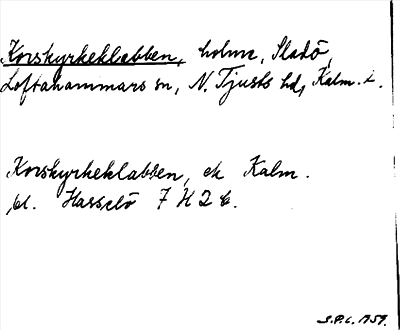 Korskyrkeklabben, holme, Sladö,
Loftahammars sn, N. Tjusts hd, Kalm. l.
Korskyrkeklabben, ek Kalm.
bl. Hasselö 7 H 2 b.
S.P.L. 1959.